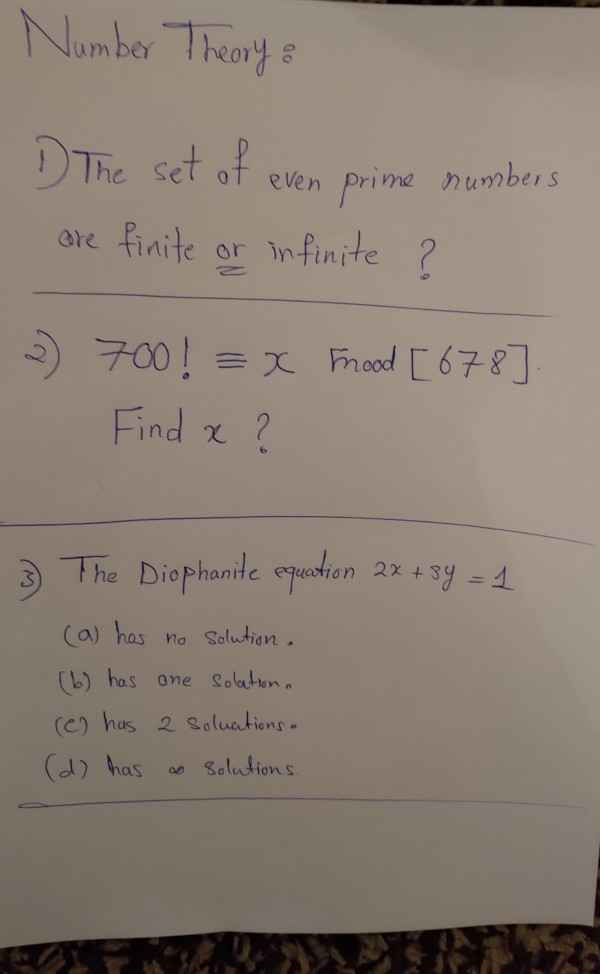 Number Theory:
1) The set of even prime numbers
are finite or infinite ?
2) 700! ≡ x mod [678].
Find x ?
3) The Diophanite equation 2x + 3y = 1
(a) has no solution.
(b) has one solation.
(c) has 2 soluations.
(d) has ∞ solutions.